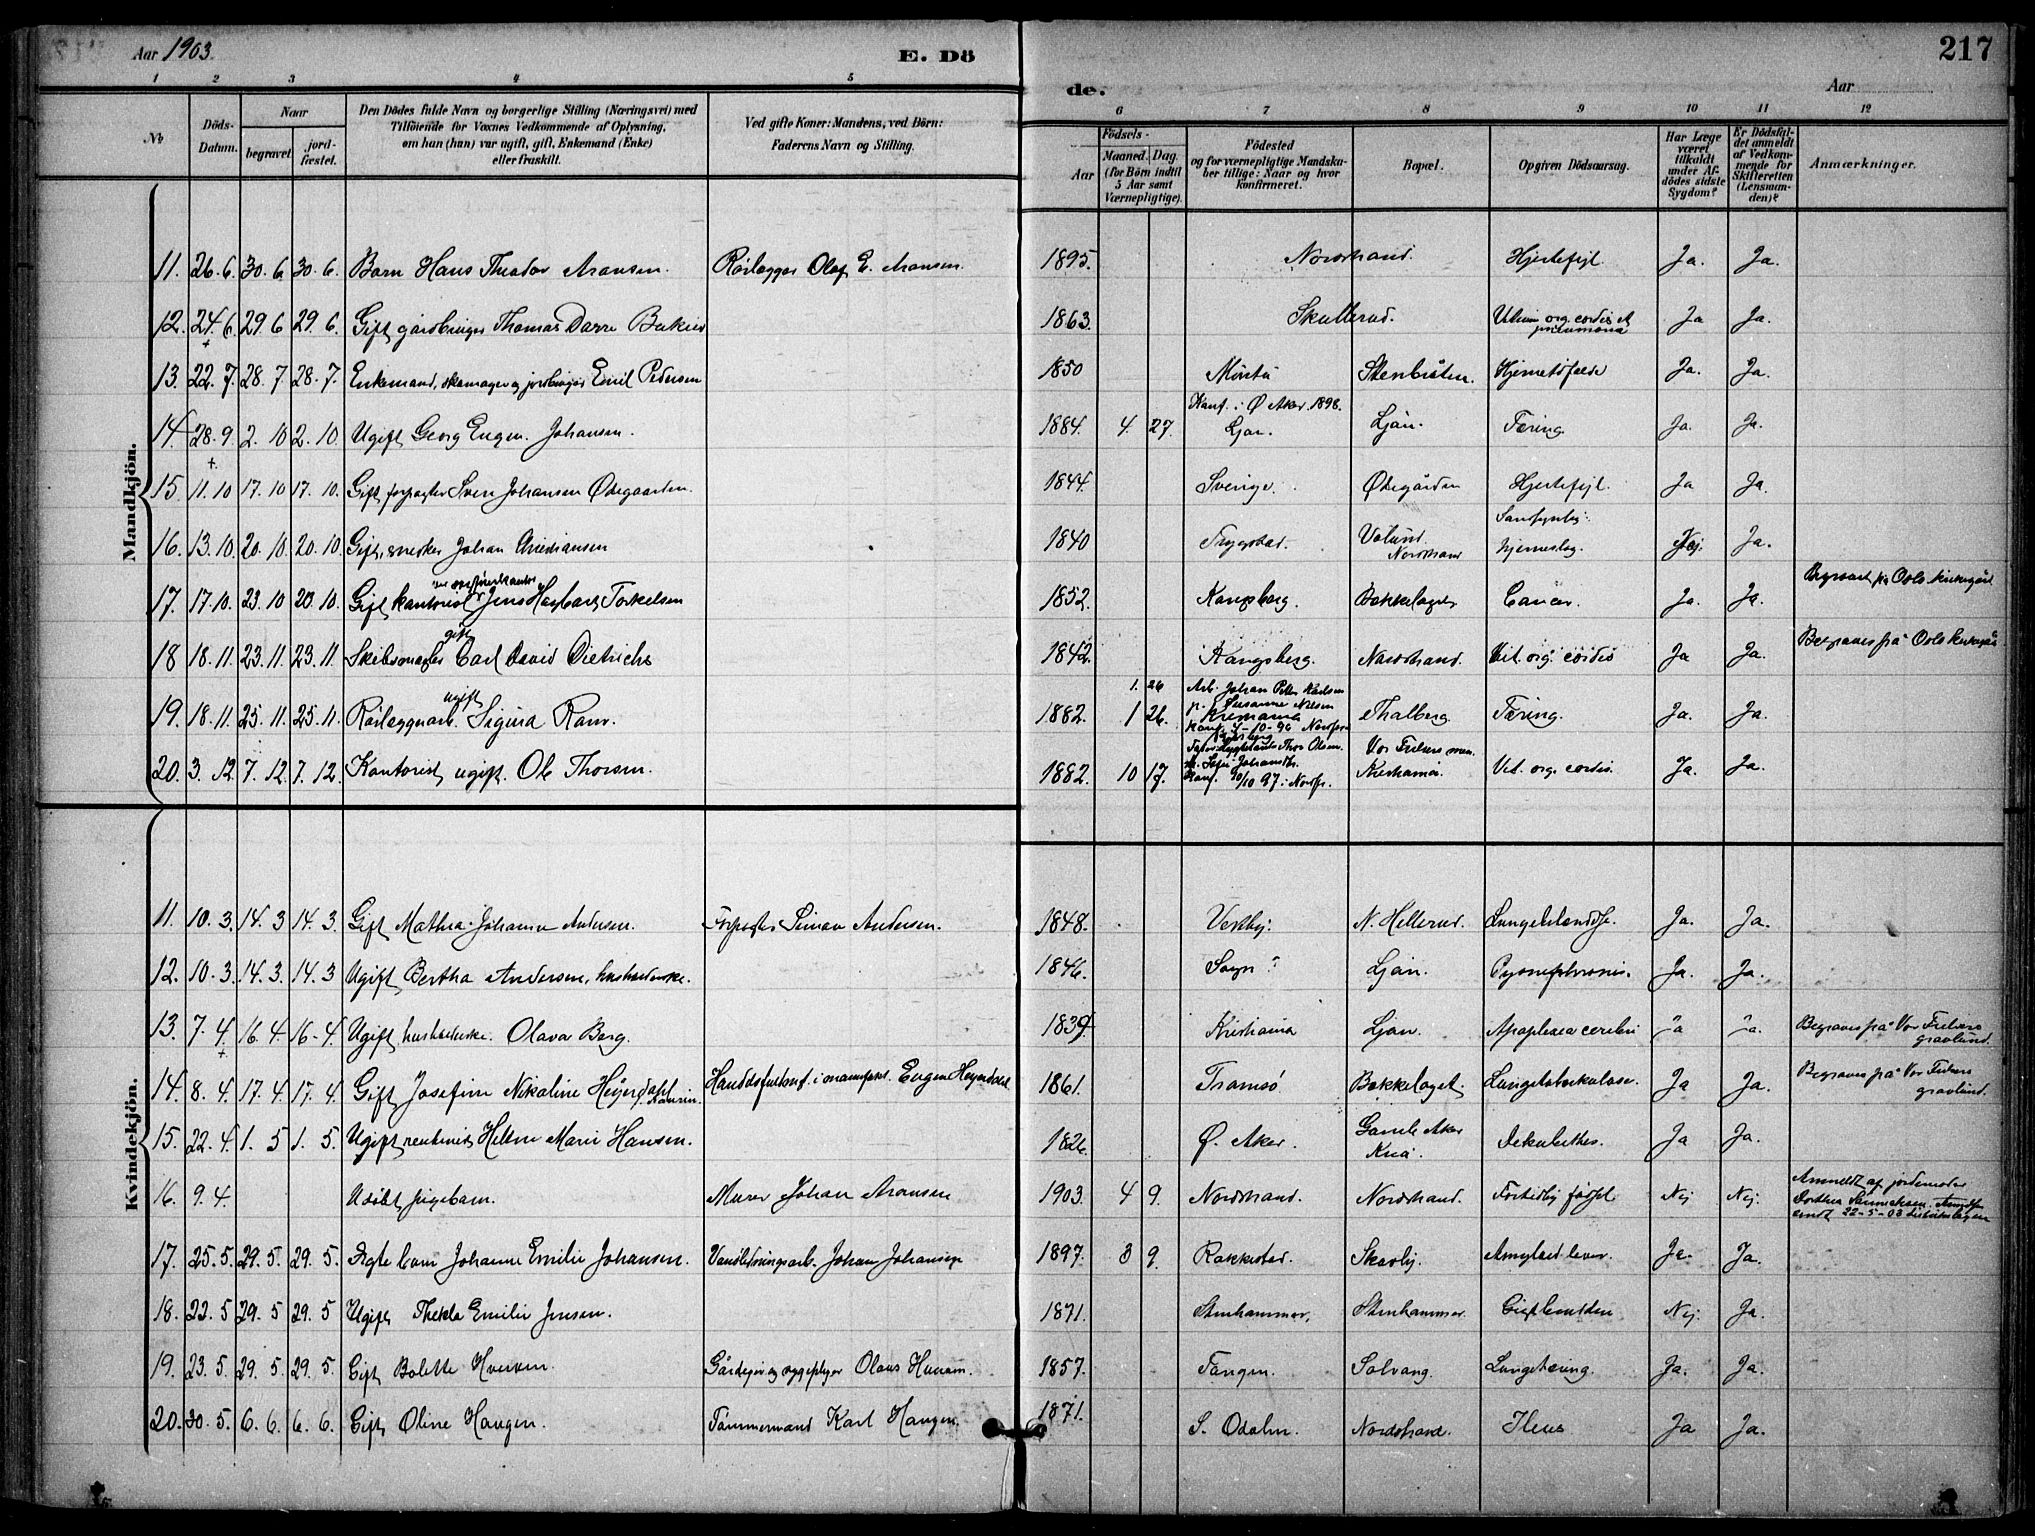 Aar 1903.
E. Dö
de.
Aar
217
1 2 3 4 5 6 7 8 9 10 11 12
No
Döds-Datum.
Naar
begravet.
jordfæstet.
Den Dödes fulde Navn og borgerlige Stilling (Næringsvei) med
Tilföiende for Voxnes Vedkommende af Oplysning,
om han (hun) var ugift, gift, Enkemand (Enke)
eller fraskilt.
Ved gifte Koner: Mandens, ved Börn:
Faderens Navn og Stilling.
Födsels-
Aar
Maaned. Dag.
(for Börn indtil
5 Aar samt
Værnepligtige).
Födested
og for værnepligtige Mandska-
ber tillige: Naar og hvor
konfirmeret.
Bopæl.
Opgiven Dödsaarsag.
Har Læge
været
tilkaldt
under Af-
dödes sidste
Sygdom?
Er Dödsfal-
det anmeldt
af Vedkom-
mende for
Skifteretten
(Lensman-
den)?
Anmærkninger.
Mandkjön.
11. 26. 6. 30. 6. 30. 6. Barn Hans Theodor Aronsen. Rörlægger Olaf E. Aronsen. 1895. Nordstrand. Hjertefejl. Ja. Ja.
12. 24. 6. 29. 6 29. 6. Gift gårdbruger Thomas Darre 1863. Skullerud. org. cordis et pneumonia Ja Ja.
13. 22. 7. 28. 7. 28. 7. Enkemand, skomager og jordbruger Emil Pedersen 1850 Stenbråten. Ja. Ja.
14. 28. 9. 2. 10 2. 10. Ugift Georg Eugen Johansen. 1884. 4. 27. Konf. i Ø Aker 1898. Ljan. Ljan. Tæring. Ja. Ja.
15. 11. 10 17. 10 17. 10. Gift forpagter Sven Johansen Ødegaarden. 1844. Sverige. Ødegården Hjertefejl. Ja Ja.
16. 13. 10. 20. 10. 20. 10. Gift, snedker Johan Christiansen 1840 Trygstad. Volund. Nordstrand Sandsynlig hjerneslag. Nej. Ja.
17. 17. 10. 23. 10 20. 10. Gift kantorist Jens Torkelsen 1852. Kongsberg. Bækkelaget Cancer. Ja. Ja. Begravet på Oslo kirkegård
18 18. 11. 23. 11. 23. 11. Skibsmægler gift Carl David Dietrichs 1842. Kongsberg. Nordstrand. Vit. org. cordis Ja Ja. Begraves på Oslo kirkegård
19. 18. 11. 25. 11. 25. 11. Rørlæggerarb. ugift Sigurd 1882. 1 26. Arb. Johan Petter Karlsen Susanne Nilsen Kristiania Thalberg Tæring. Ja. Ja.
20. 3. 12. 7. 12. 7. 12. Kontorist ugift. Ole Thorsen. 1882. 10 17. Thor Olsen. Konf. 10/10 97 i Nordstr. Vor Frelsers men. Kristiania. Vit. org. cordis. Ja. Ja.
Kvindekjön.
11. 10. 3. 14. 3 14. 3. Gift Mathea Johanne Andersen. Forpagter Simon Andersen. 1848. Vestby. N. Hellerud. Ja. Ja.
12. 10. 3. 14. 3. 14. 3 Ugift Bertha Andersen, husholderske. 1846. Sogn ? Ljan. Pyonephronis. Ja. Ja.
13. 7. 4. 16. 4. 16. 4. Ugift husholderske. Olava Berg. 1839. Kristiania Ljan. Apoplexia cerebri Ja Ja. Begraves på Vor Frelsers gravlund.
14. 8. 4. 17. 4. 17. 4. Gift Josefine Nikoline Heyerdahl Eugen Heyerdahl 1861. Tromsø Bækkelaget. Lungetuberkulose. Ja Ja. Begraves på Vor Frelsers gravlund.
15. 22. 4. 1. 5 1. 5. Ugift rentenist Helene Marie Hansen. 1826. Ø. Aker. Gamle Aker Ja Ja.
16. 9. 4. Udöbt pigebarn. Murer Johan Aronsen 1903. 4 9. Nordstrand. Nordstrand. Fortidlig födsel. Nej Nej. Anmeldt af jordemoder Dorthea 22-5-03
17. 25. 5. 29. 5. 29. 5. Ægte barn Johanne Emilie Johansen. Vandledningsarb. Johan Johansen 1897. 3 9. Rakkestad. Skovly. Amyloid lever. Ja. Ja.
18. 22. 5. 29. 5. 29. 5. Ugift Thekla Emilie Jensen. 1871. Stenhammer. Stenhammer. Nej. Ja.
19. 23. 5. 29. 5. 29. 5. Gift Bolette Hverven. Gårdejer og Olaus 1857. Tangen. Solvang. Lungetæring. Ja. Ja.
20. 30. 5. 6. 6. 6. 6. Gift Oline Haugen. Tömmermand Karl Haugen. 1871. S. Odalen. Nordstrand. Ileus Ja Ja.